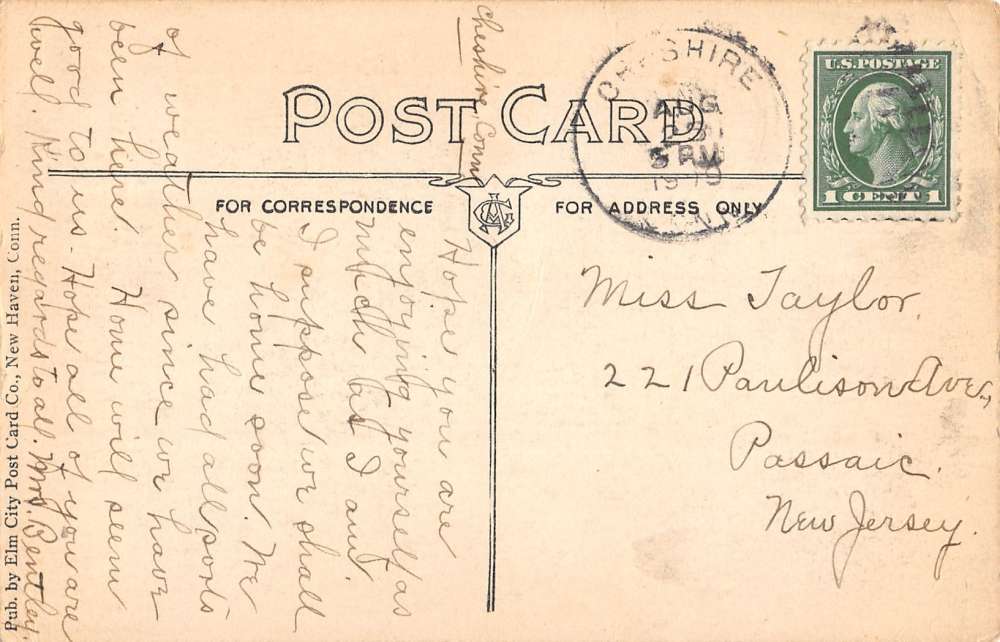 POST CARD
FOR CORRESPONDENCE
FOR ADDRESS ONLY
CHESHIRE
AUG
5 PM
U.S. POSTAGE
1 CENT 1
Miss Taylor,
221 Paulison Ave.,
Passaic.
New Jersey.
Cheshire Conn
Hope you are
enjoying yourself as
much as I am.
I suppose we shall
be home soon. We
have had all sorts
of weather since we have
been here. Home will seem
good to us. Hope all of you are
well. Kind regards to all. Mrs. Bentley.
Pub. by Elm City Post Card Co., New Haven, Conn.